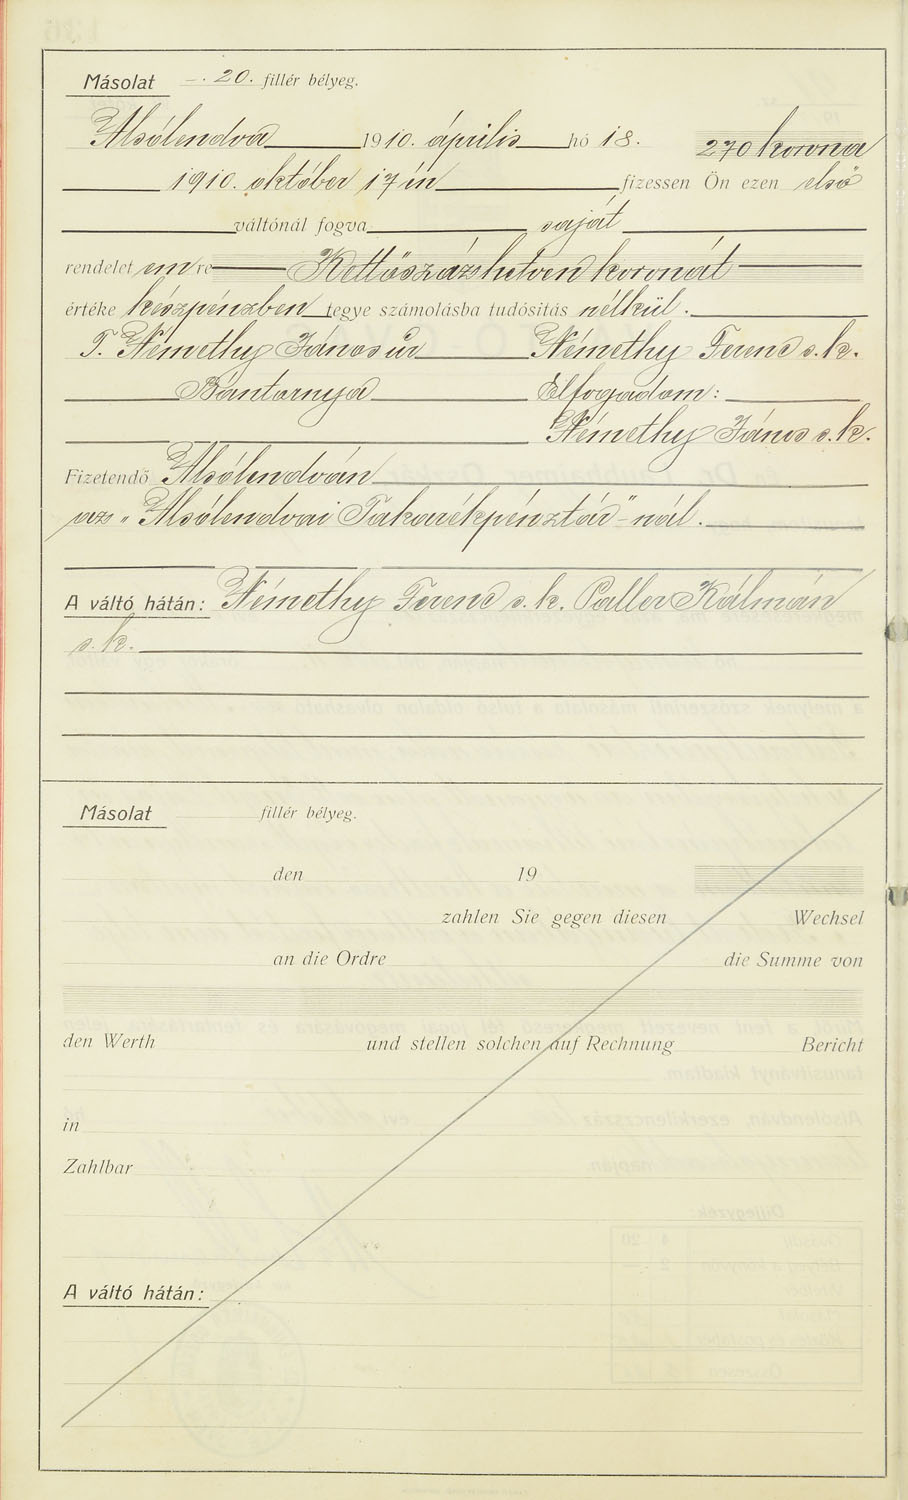 Másolat —.20. fillér bélyeg.
Alsólendva 1910. április hó 18. 270 korona
1910. október 17 én fizessen Ön ezen első
váltónál fogva saját
rendelet em re Kettőszázhetven koronát
értéke készpénzben tegye számolásba tudósitás nélkül.
T. Némethy János úr Némethy Ferenc s.k.
Bántornya Elfogadom:
Némethy János s.k.
Fizetendő Alsólendván
az „Alsólendvai Takarékpénztár"-nál.
A váltó hátán: Némethy Ferenc s.k. Paller Kálmán
s.k.
Másolat fillér bélyeg.
den 19
zahlen Sie gegen diesen Wechsel
an die Ordre die Summe von
den Werth und stellen solchen auf Rechnung Bericht
in
Zahlbar
A váltó hátán: